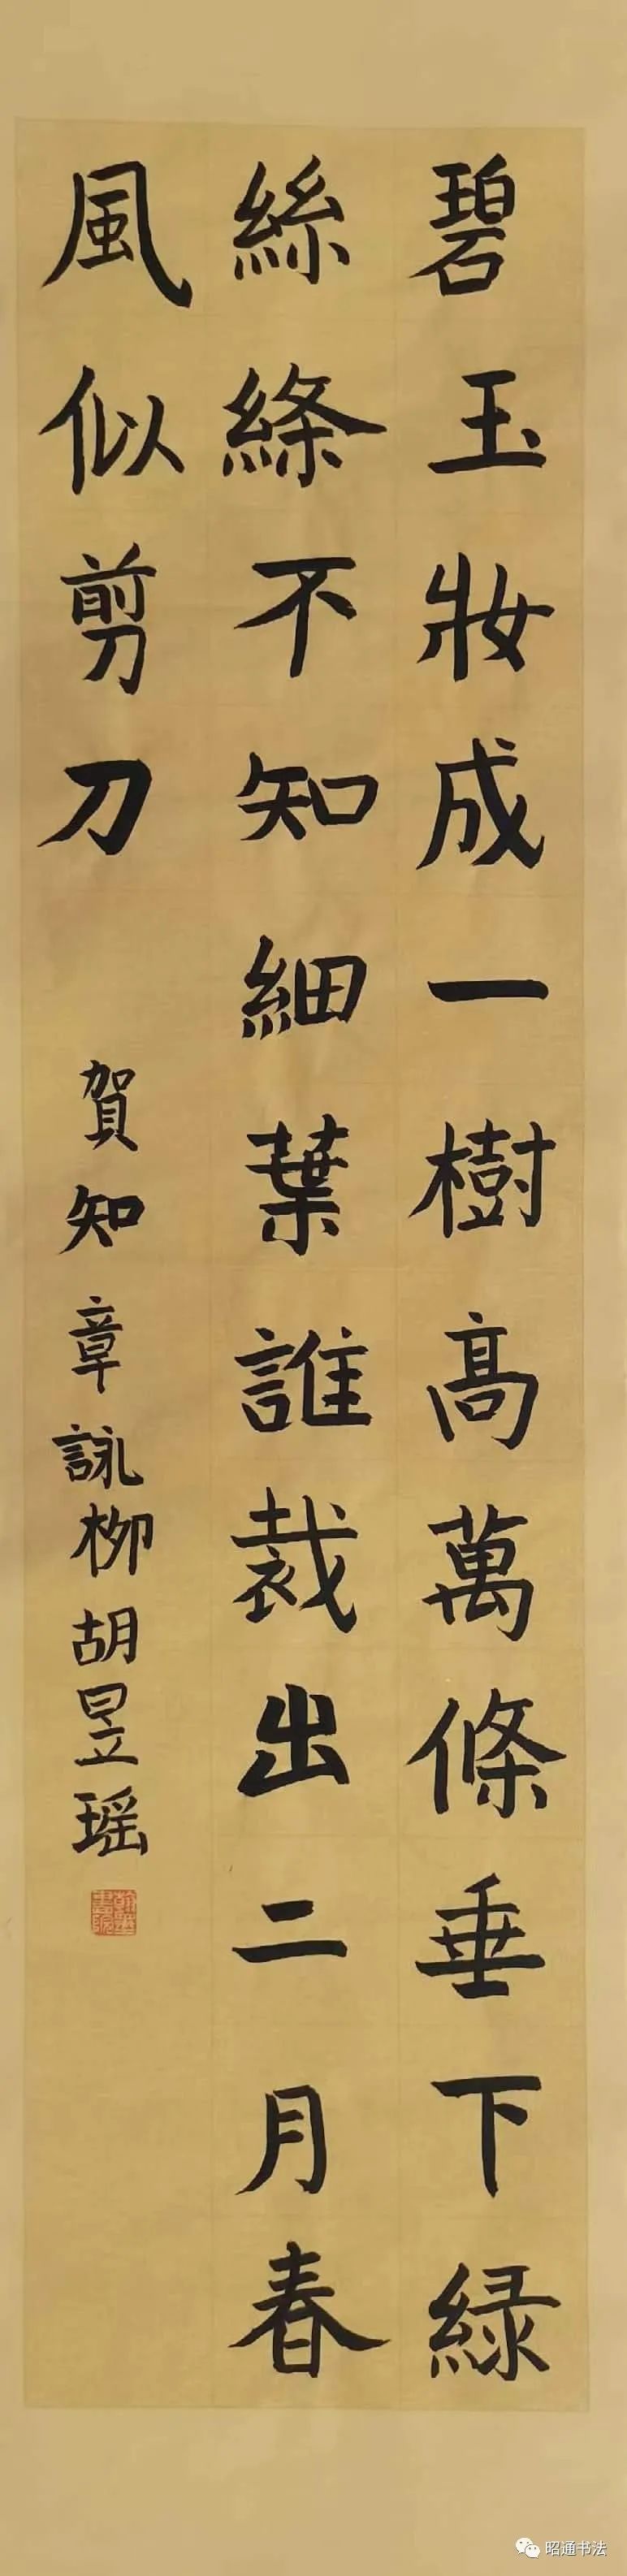 碧玉妝成一樹高萬條垂下緑
絲縧不知細葉誰裁出二月春
風似剪刀
賀知章詠柳胡昱瑶
昭通书法